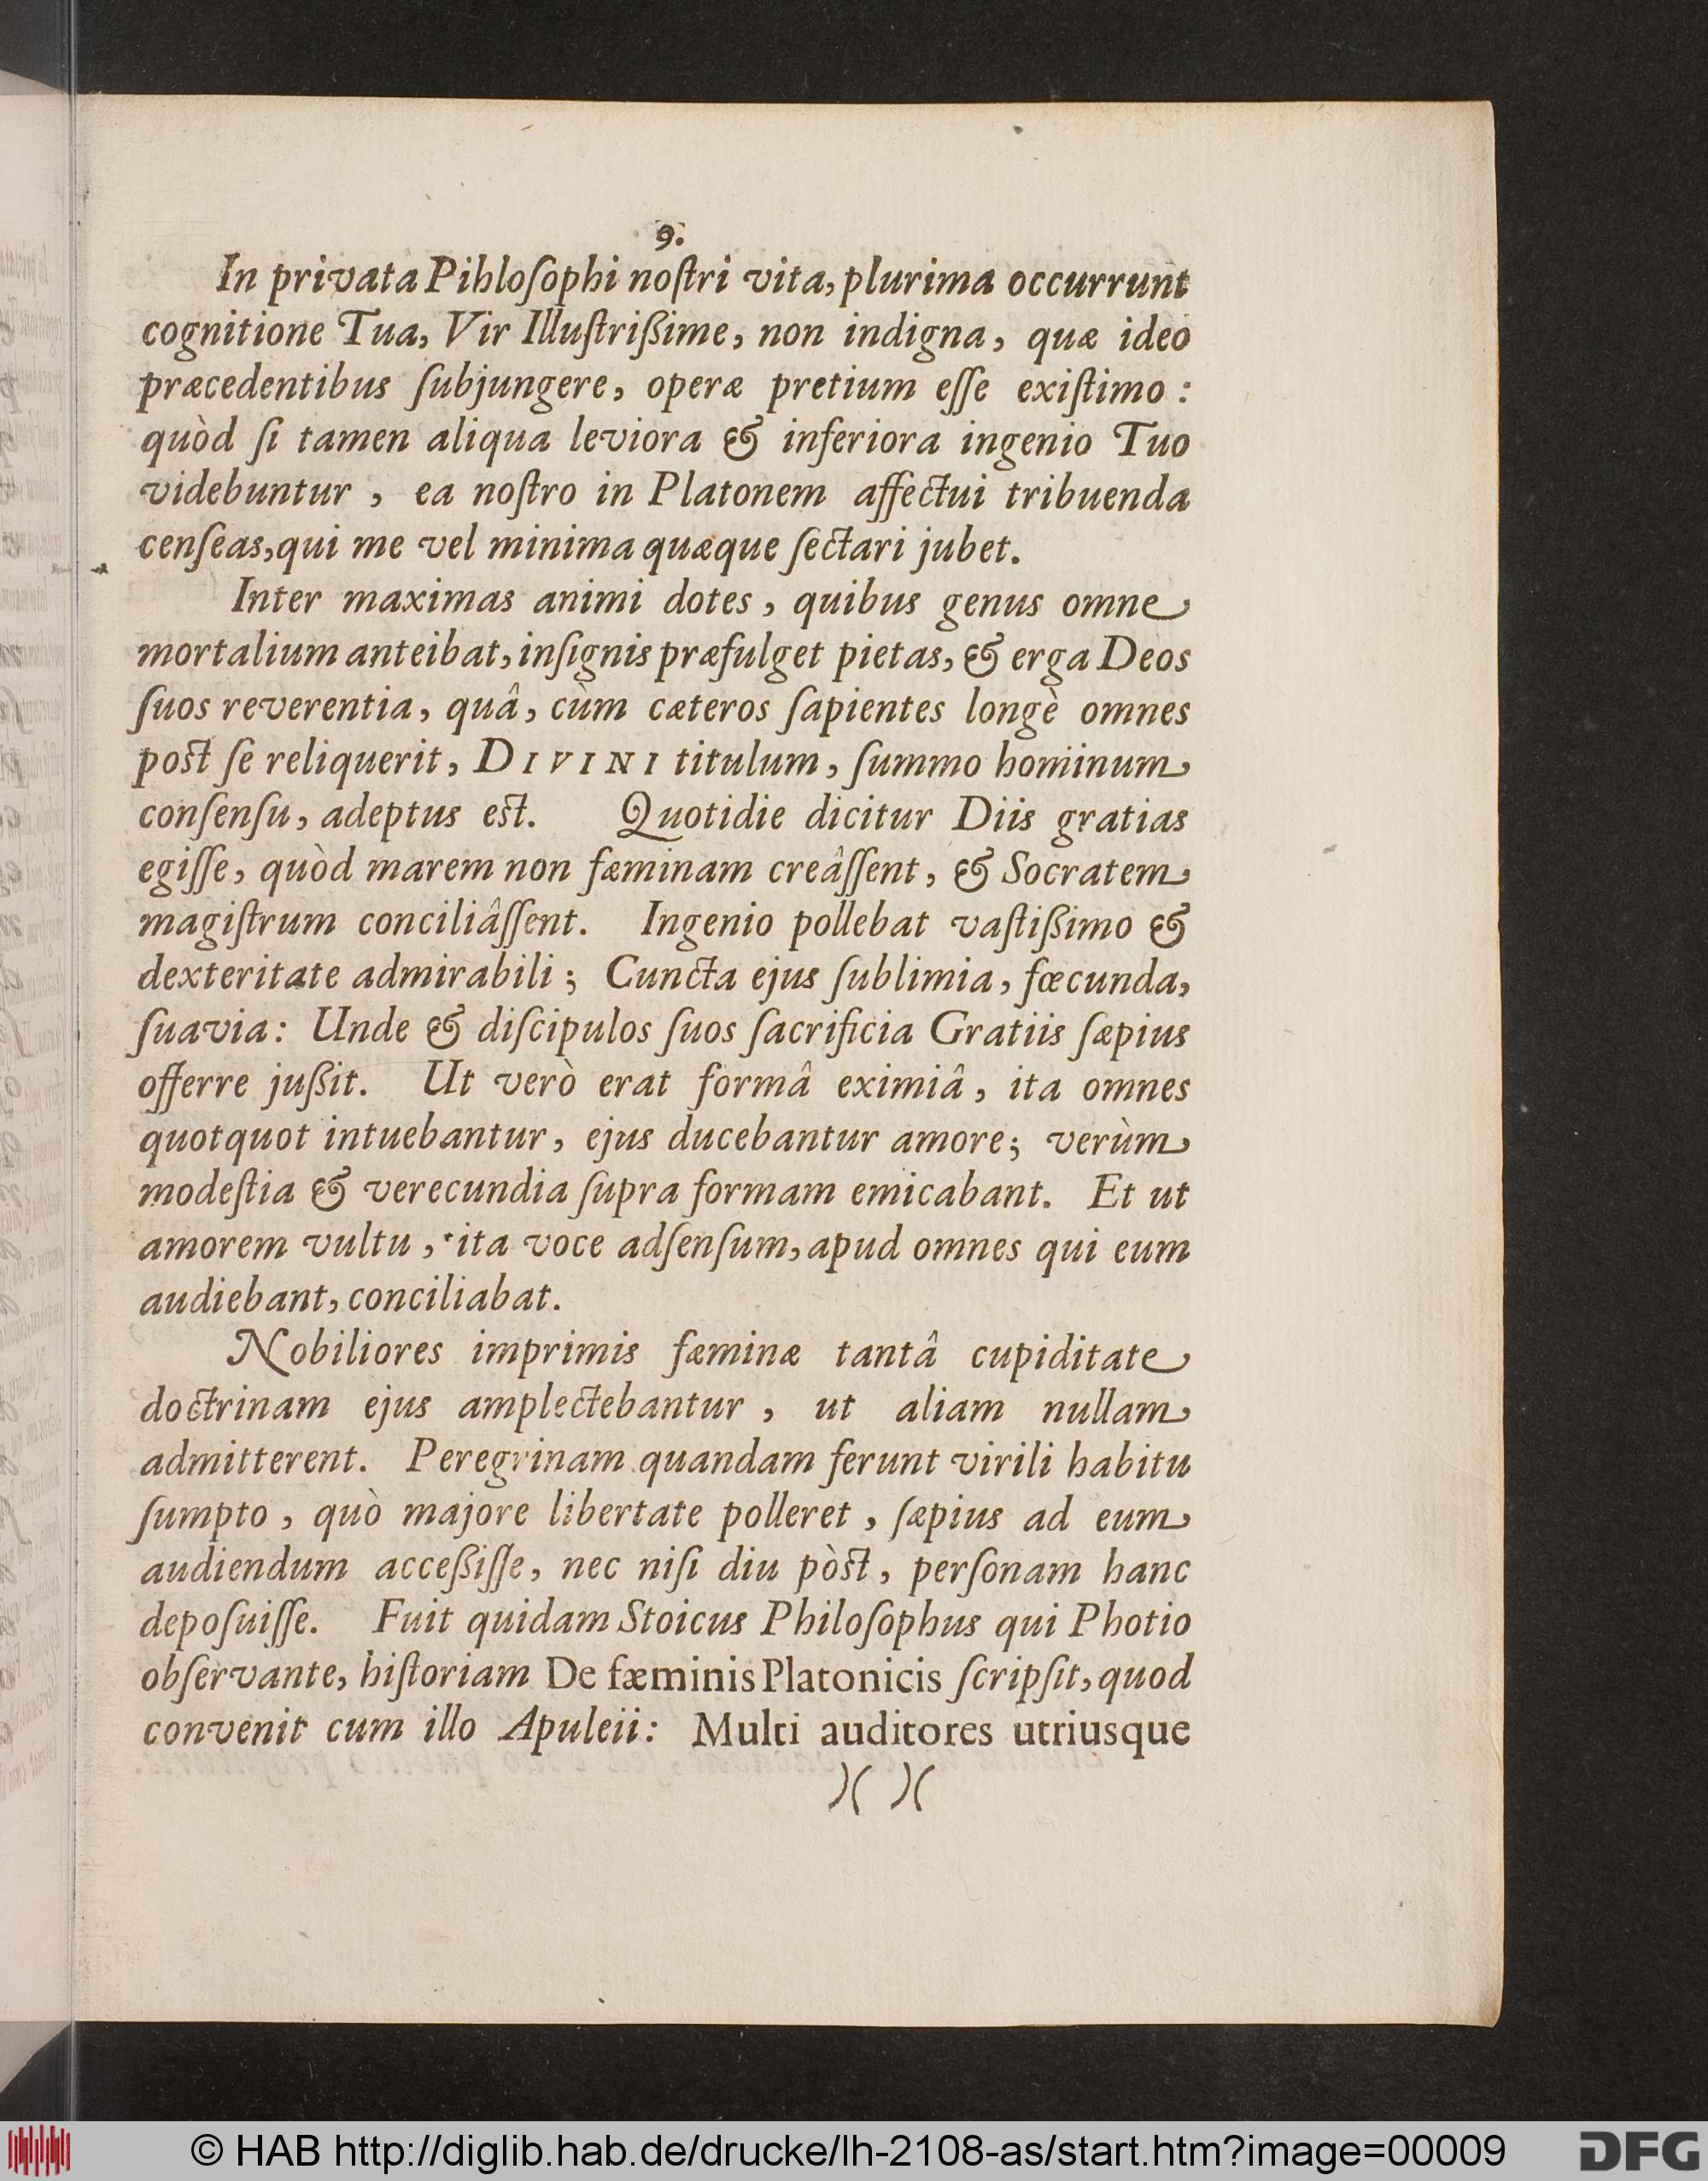 9.
In privata Pihloſophi noſtri vita, plurima occurrunt
cognitione Tua, Vir Illuſtrißime, non indigna, quæ ideo
præcedentibus ſubjungere, operæ pretium eſſe exiſtimo:
quòd ſi tamen aliqua leviora & inferiora ingenio Tuo
videbuntur, ea noſtro in Platonem affectui tribuenda
cenſeas, qui me vel minima quæque ſectari jubet.
Inter maximas animi dotes, quibus genus omne
mortalium anteibat, inſignis præfulget pietas, & erga Deos
ſuos reverentia, quâ, cùm cæteros ſapientes longè omnes
poſt ſe reliquerit, DIVINI titulum, ſummo hominum
conſenſu, adeptus eſt. Quotidie dicitur Diis gratias
egiſſe, quòd marem non fæminam creâſſent, & Socratem
magiſtrum conciliâſſent. Ingenio pollebat vaſtißimo &
dexteritate admirabili; Cuncta ejus ſublimia, fœcunda,
ſuavia: Unde & diſcipulos ſuos ſacrificia Gratiis ſæpius
offerre jußit. Ut verò erat formâ eximiâ, ita omnes
quotquot intuebantur, ejus ducebantur amore; verùm
modeſtia & verecundia ſupra formam emicabant. Et ut
amorem vultu, ita voce adſenſum, apud omnes qui eum
audiebant, conciliabat.
Nobiliores imprimis fæminæ tantâ cupiditate
doctrinam ejus amplectebantur, ut aliam nullam
admitterent. Peregrinam quandam ferunt virili habitu
ſumpto, quò majore libertate polleret, ſæpius ad eum
audiendum acceßiſſe, nec niſi diu pòſt, perſonam hanc
depoſuiſſe. Fuit quidam Stoicus Philoſophus qui Photio
obſervante, hiſtoriam De fæminis Platonicis ſcripſit, quod
convenit cum illo Apuleii: Multi auditores utriusque
)( )(
© HAB http://diglib.hab.de/drucke/lh-2108-as/start.htm?image=00009
DFG